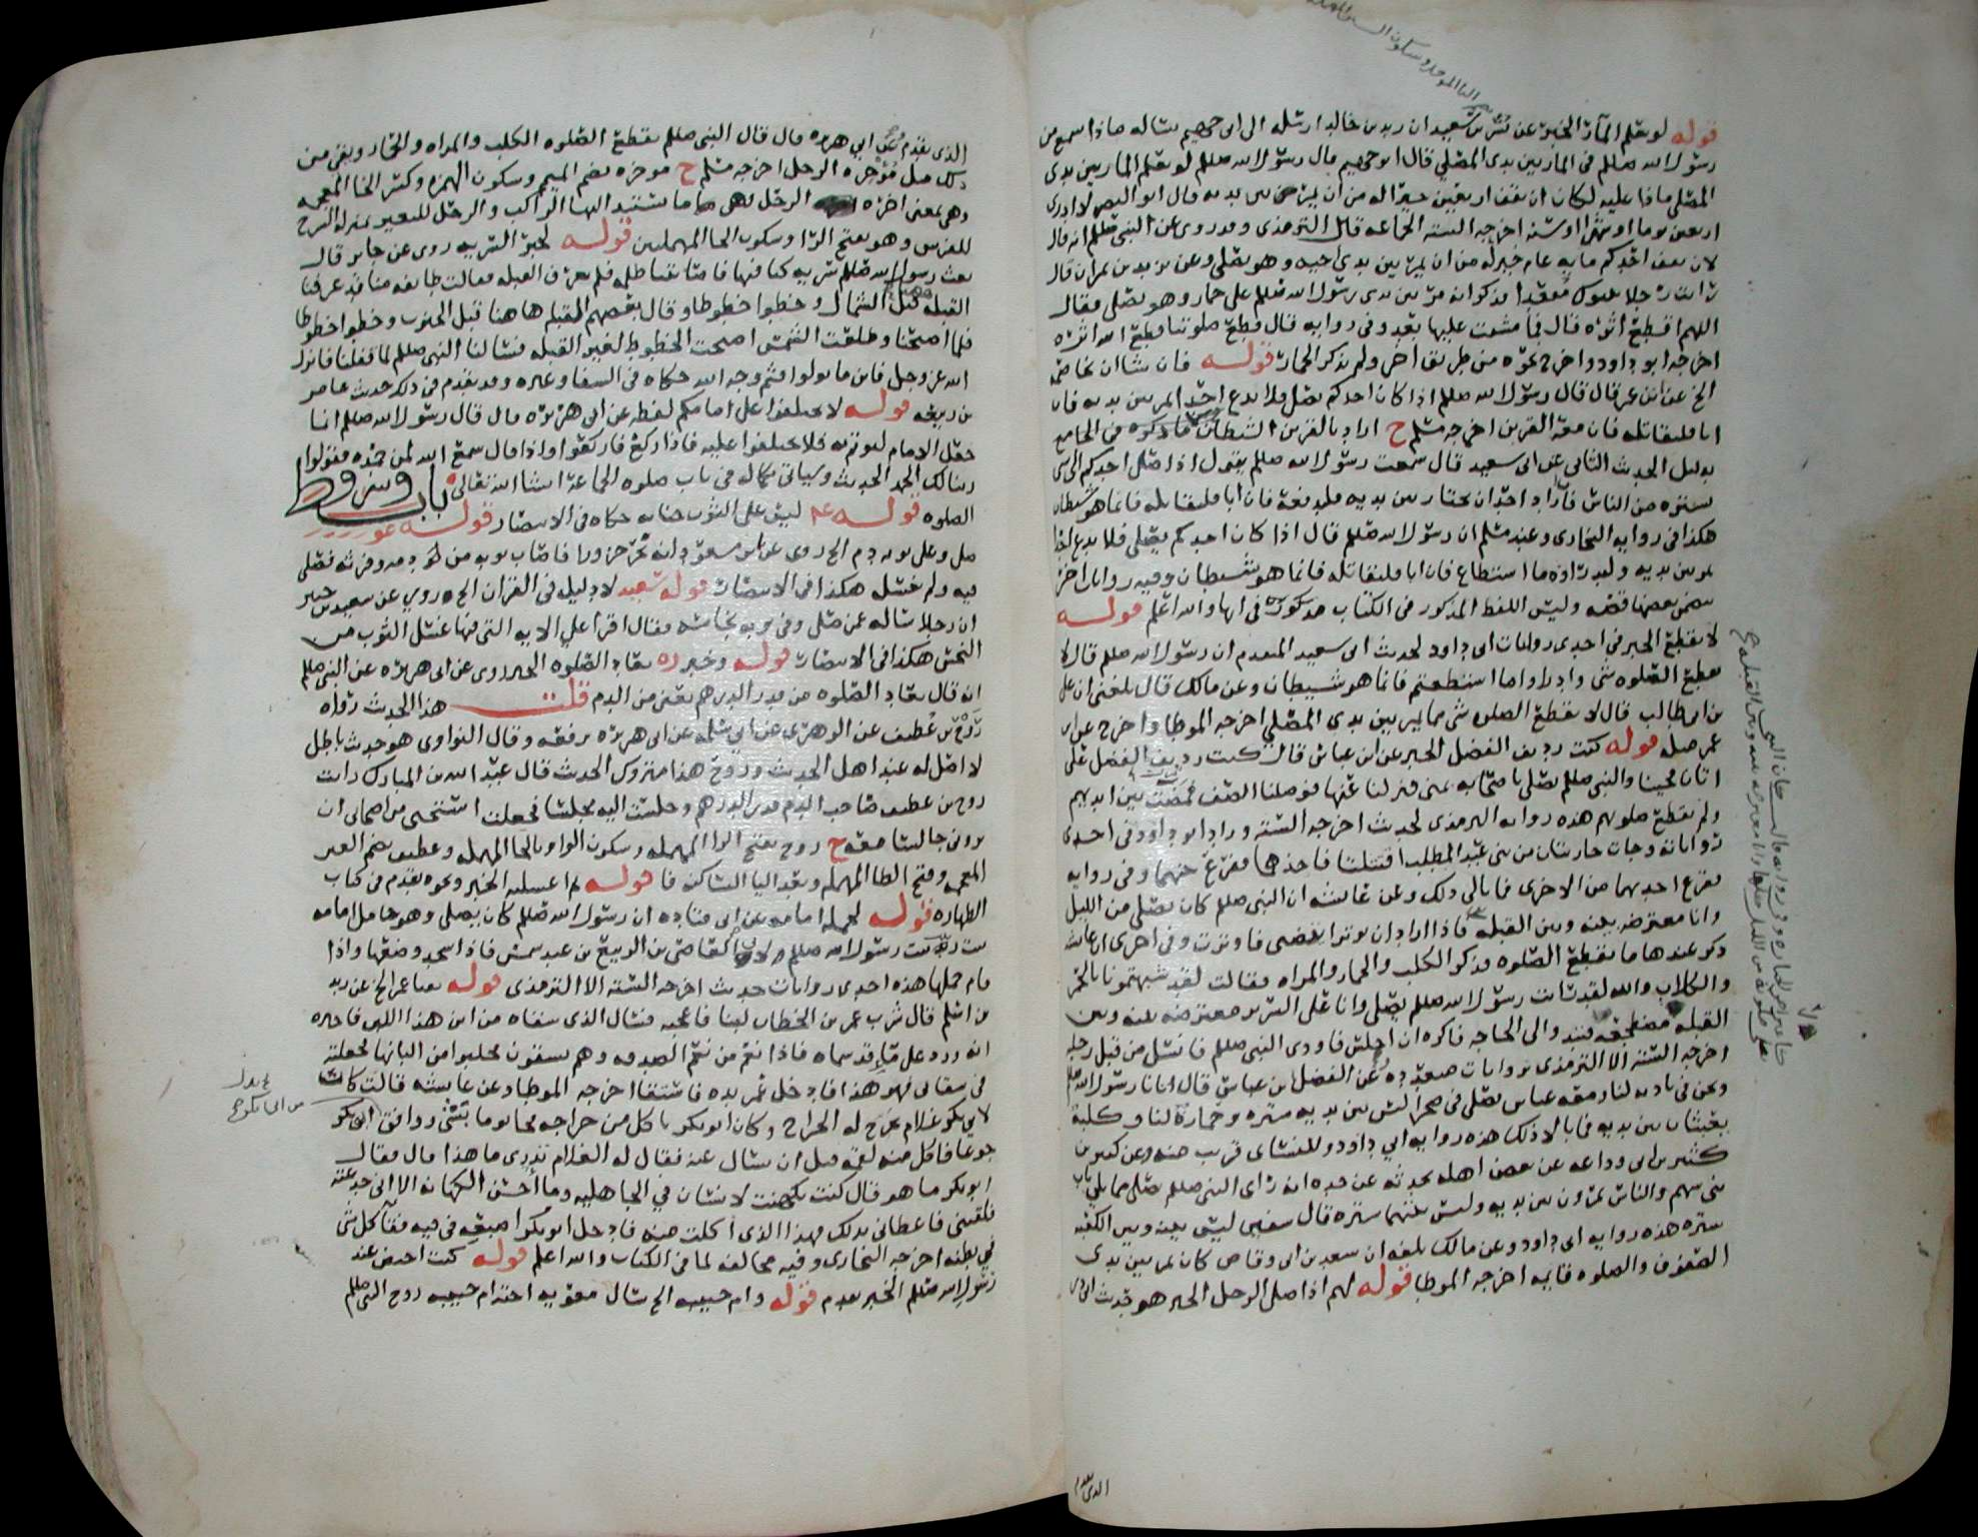 قوله لو يعلم المآر الخبر عن بسر بن سعيد ان زيد بن خالد ارسله الى ابي جهيم يساله ماذا سمع من
رسول الله صللم في المار بين يدي المصلي قال ابو جهيم قال رسول الله صللم لو يعلم المار بين يدي
المصلي ماذا عليه لكان ان يقف اربعين خيرا له من ان يمر بين يديه قال ابو النضر لا ادري
اربعين يوما او شهرا او سنه اخرجه السته الجماعه قال الترمذي وقد روي عن النبي صللم انه قال
لان يقف احدكم مايه عام خير له من ان يمر بين يدي اخيه وهو يصلي وعن يزيد بن نمران قال
رايت رجلا بتبوك مقعدا فذكر انه مر بين يدي رسول الله صللم على حمار وهو يصلي فقال
اللهم اقطع اثره قال فما مشيت عليها بعد وفي روايه قال قطع صلوتنا قطع الله اثره
اخرجه ابو داود واخرج نحوه من طريق اخر ولم يذكر الحمار قوله فان شا ان
الخ عن ابن عمر قال قال رسول الله صللم اذا كان احدكم يصلي فلا يدع احدا يمر بين يديه فان
ابا فليقاتله فان معه القرين اخرجه مسلم ح اراد بالقرين الشيطان ذكره في الجامع
بدليل الحديث الثاني عن ابي سعيد قال سمعت رسول الله صللم يقول اذا صلى احدكم الى شي
يستره من الناس فاراد احد ان يجتاز بين يديه فليدفعه فان ابا فليقاتله فانما هو شيطان
هكذا في روايه البخاري وعند مسلم ان رسول الله صللم قال اذا كان احدكم يصلي فلا يدع احدا
يمر بين يديه وليدراه ما استطاع فان ابا فليقاتله فانما هو شيطان وفيه روايات اخر
بعضها قصه وليس اللفظ المذكور في الكتاب مذكورا في ايها والله اعلم قوله
لا يقطع الخبر في احدى روايات ابي داود لحديث ابي سعيد المتقدم ان رسول الله صللم قال لا
يقطع الصلوه شي وادراوا ما استطعتم فانما هو شيطان وعن مالك قال بلغني ان علي
بن ابي طالب قال لا يقطع الصلوه شي مما يمر بين يدي المصلي اخرجه الموطا واخرج عن ابن
عمر مثله قوله كنت رديف الفضل الخبر عن ابن عباس قال كنت رديف الفضل على
اتان فجينا والنبي صللم يصلي باصحابه بمنى فنزلنا عنها فوصلنا الصف فمضت بين ايديهم
ولم يقطع صلوتهم هذه روايه الترمذي لحديث اخرجه السته وزاد ابو داود في احدى
رواياته وجات جاريتان من بني عبد المطلب اقتتلتا فاخذهما ففرع بينهما وفي روايه
ففرع احديهما من الاخرى فما بالى ذلك وعن عائشه ان النبي صللم كان يصلي من الليل
وانا معترضه بينه وبين القبله فاذا اراد ان يوتر ايقضني فاوترت وفي اخرى ان عائشه
ذكر عندها ما يقطع الصلوه فذكر الكلب والحمار والمراه فقالت لقد شبهتمونا بالحمر
والكلاب والله لقد رايت رسول الله صللم يصلي وانا على السرير معترضه بينه وبين
القبله مضطجعه فتبدوا لي الحاجه فاكره ان اجلس فاوذي النبي صللم فانسل من قبل رجليه
اخرجه السته الا الترمذي بروايات متعدده عن الفضل بن عباس قال اتانا رسول الله صللم
ونحن في باديه لنا ومعه عباس يصلي في صحرا ليس بين يديه ستره وحمارة لنا وكلبة
يعبثان بين يديه فما بالا ذلك هذه روايه ابي داود وللنسائي قريب منه وعن كثير بن
كثير بن ابي وداعه عن بعض اهله يحدثه عن جده انه راى النبي صللم يصلي مما يلي باب
بني سهم والناس يمرون بين يديه وليس بينهما ستره قال سفين ليس بينه وبين الكعبه
ستره هذه روايه ابي داود وعن مالك بلغه ان سعد بن ابي وقاص كان يمر بين يدي
الصفوف والصلوه قايمه اخرجه الموطا قوله لهم اذا صلى الرجل الخبر هو حديث ابي ذر
الذي تقدم
الذي تقدم عن ابي هريره قال قال النبي صللم يقطع الصلوه الكلب والمراه والحمار ويقي من
ذلك مثل مؤخره الرحل اخرجه مسلم ح موخره بضم الميم وسكون الهمزه وكسر الخا المعجمه
وهي بمعنى اخره الرحل وهي ما يستند اليها الراكب والرحل للبعير بمنزله السرج
للفرس وهو بفتح الرا وسكون الحا المهملين قوله لخبر السريه روي عن جابر قال
بعث رسول الله صللم سريه كنا فيها فاصابتنا ظلمه فلم نعرف القبله فقالت طايفه منا قد عرفنا
القبله قبل الشمال وخطوا خطوطا وقال بعضهم القبله هاهنا قبل الجنوب وخطوا خطوطا
فلما اصبحنا وطلعت الشمس اصبحت الخطوط لغير القبله فسالنا النبي صللم لما قفلنا فانزل
الله عز وجل فاينما تولوا فثم وجه الله حكاه في الشفا وغيره وقد تقدم في ذلك حديث عامر
بن ربيعه قوله لا تختلفوا على امامكم لفظه عن ابي هريره قال قال رسول الله صللم انما
جعل الامام ليوتم به فلا تختلفوا عليه فاذا ركع فاركعوا واذا قال سمع الله لمن حمده فقولوا
ربنا لك الحمد الحديث وسياتي بكماله في باب صلوه الجماعة انشا الله تعالى باب وشروط
الصلوه قوله عم ليس على الثوب جنابه حكاه في الانتصار قوله
صلى وعلى ثوبه دم الخ روي عن ابن مسعود انه نحر جزورا فاصاب ثوبه من دمه وفرثه فصلى
فيه ولم يغسله هكذا في الانتصار قوله سعيد لا دليل في القران الخ روي عن سعيد بن جبير
ان رجلا ساله عمن صلى وفي ثوبه نجاسه فقال اقرا علي الايه التي فيها غسل الثوب من
النجس هكذا في الانتصار قوله وخبر ره تعاد الصلوه الخبر روي عن ابي هريره عن النبي صللم
انه قال تعاد الصلوه من قدر الدرهم يعني من الدم قلت هذا الحديث رواه
روح بن غطيف عن الزهري عن ابي سلمه عن ابي هريره يرفعه وقال النواوي هو حديث باطل
لا اصل له عند اهل الحديث وروح هذا متروك الحديث قال عبد الله بن المبارك رايت
روح بن غطيف صاحب الدم قدر الدرهم وجلست اليه مجلسا فجعلت استحيي من اصحابي ان
يروني جالسا معه ح روح بفتح الرا المهمله وسكون الواو وبالحا المهمله وغطيف بضم الغين
المعجمه وفتح الطا المهمله وبعد اليا الساكنه فا قوله ثم اغسليه الخبر ونحوه تقدم في كتاب
الطهاره قوله لحمله امامه عن ابي قتاده ان رسول الله صللم كان يصلي وهو حامل امامه
بنت زينب بنت رسول الله صللم ولابي العاص بن الربيع بن عبد شمس فاذا سجد وضعها واذا
قام حملها هذه احدى روايات حديث اخرجه السته الا الترمذي قوله الخ عن زيد
بن اسلم قال شرب عمر بن الخطاب لبنا فاعجبه فسال الذي سقاه من اين هذا اللبن فاخبره
انه ورد على ماء قد سماه فاذا نعم من نعم الصدقه وهم يسقون فحلبوا من البانها فجعلته
في سقائي فهو هذا فادخل عمر يده فاستقا اخرجه الموطا وعن عائشه قالت كان
لابي بكر غلام يخرج له الخراج وكان ابو بكر ياكل من خراجه فجا يوما بشي ووافق ابي بكر
جوعا فاكل منه لقمه قبل ان يسال عنه فقال له الغلام تدري ما هذا قال فقال
ابو بكر ما هو قال كنت تكهنت لانسان في الجاهليه وما احسن الكهانه الا اني خدعته
فلقيني فاعطاني بذلك فهذا الذي اكلت منه فادخل ابو بكر اصبعه في فيه فقا كل شي
في بطنه اخرجه البخاري وفيه مخالفه لما في الكتاب والله اعلم قوله كنت احيض عند
رسول الله صللم الخبر تقدم قوله وام حبيبه الخ سال معويه اخته ام حبيبه زوج النبي صللم